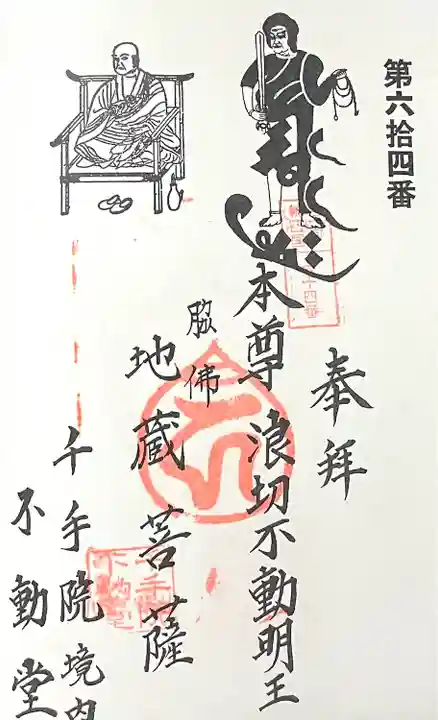 第六拾四番
奉拜
本尊 浪切不動明王
脇佛
地蔵菩薩
千手院境内
不動堂